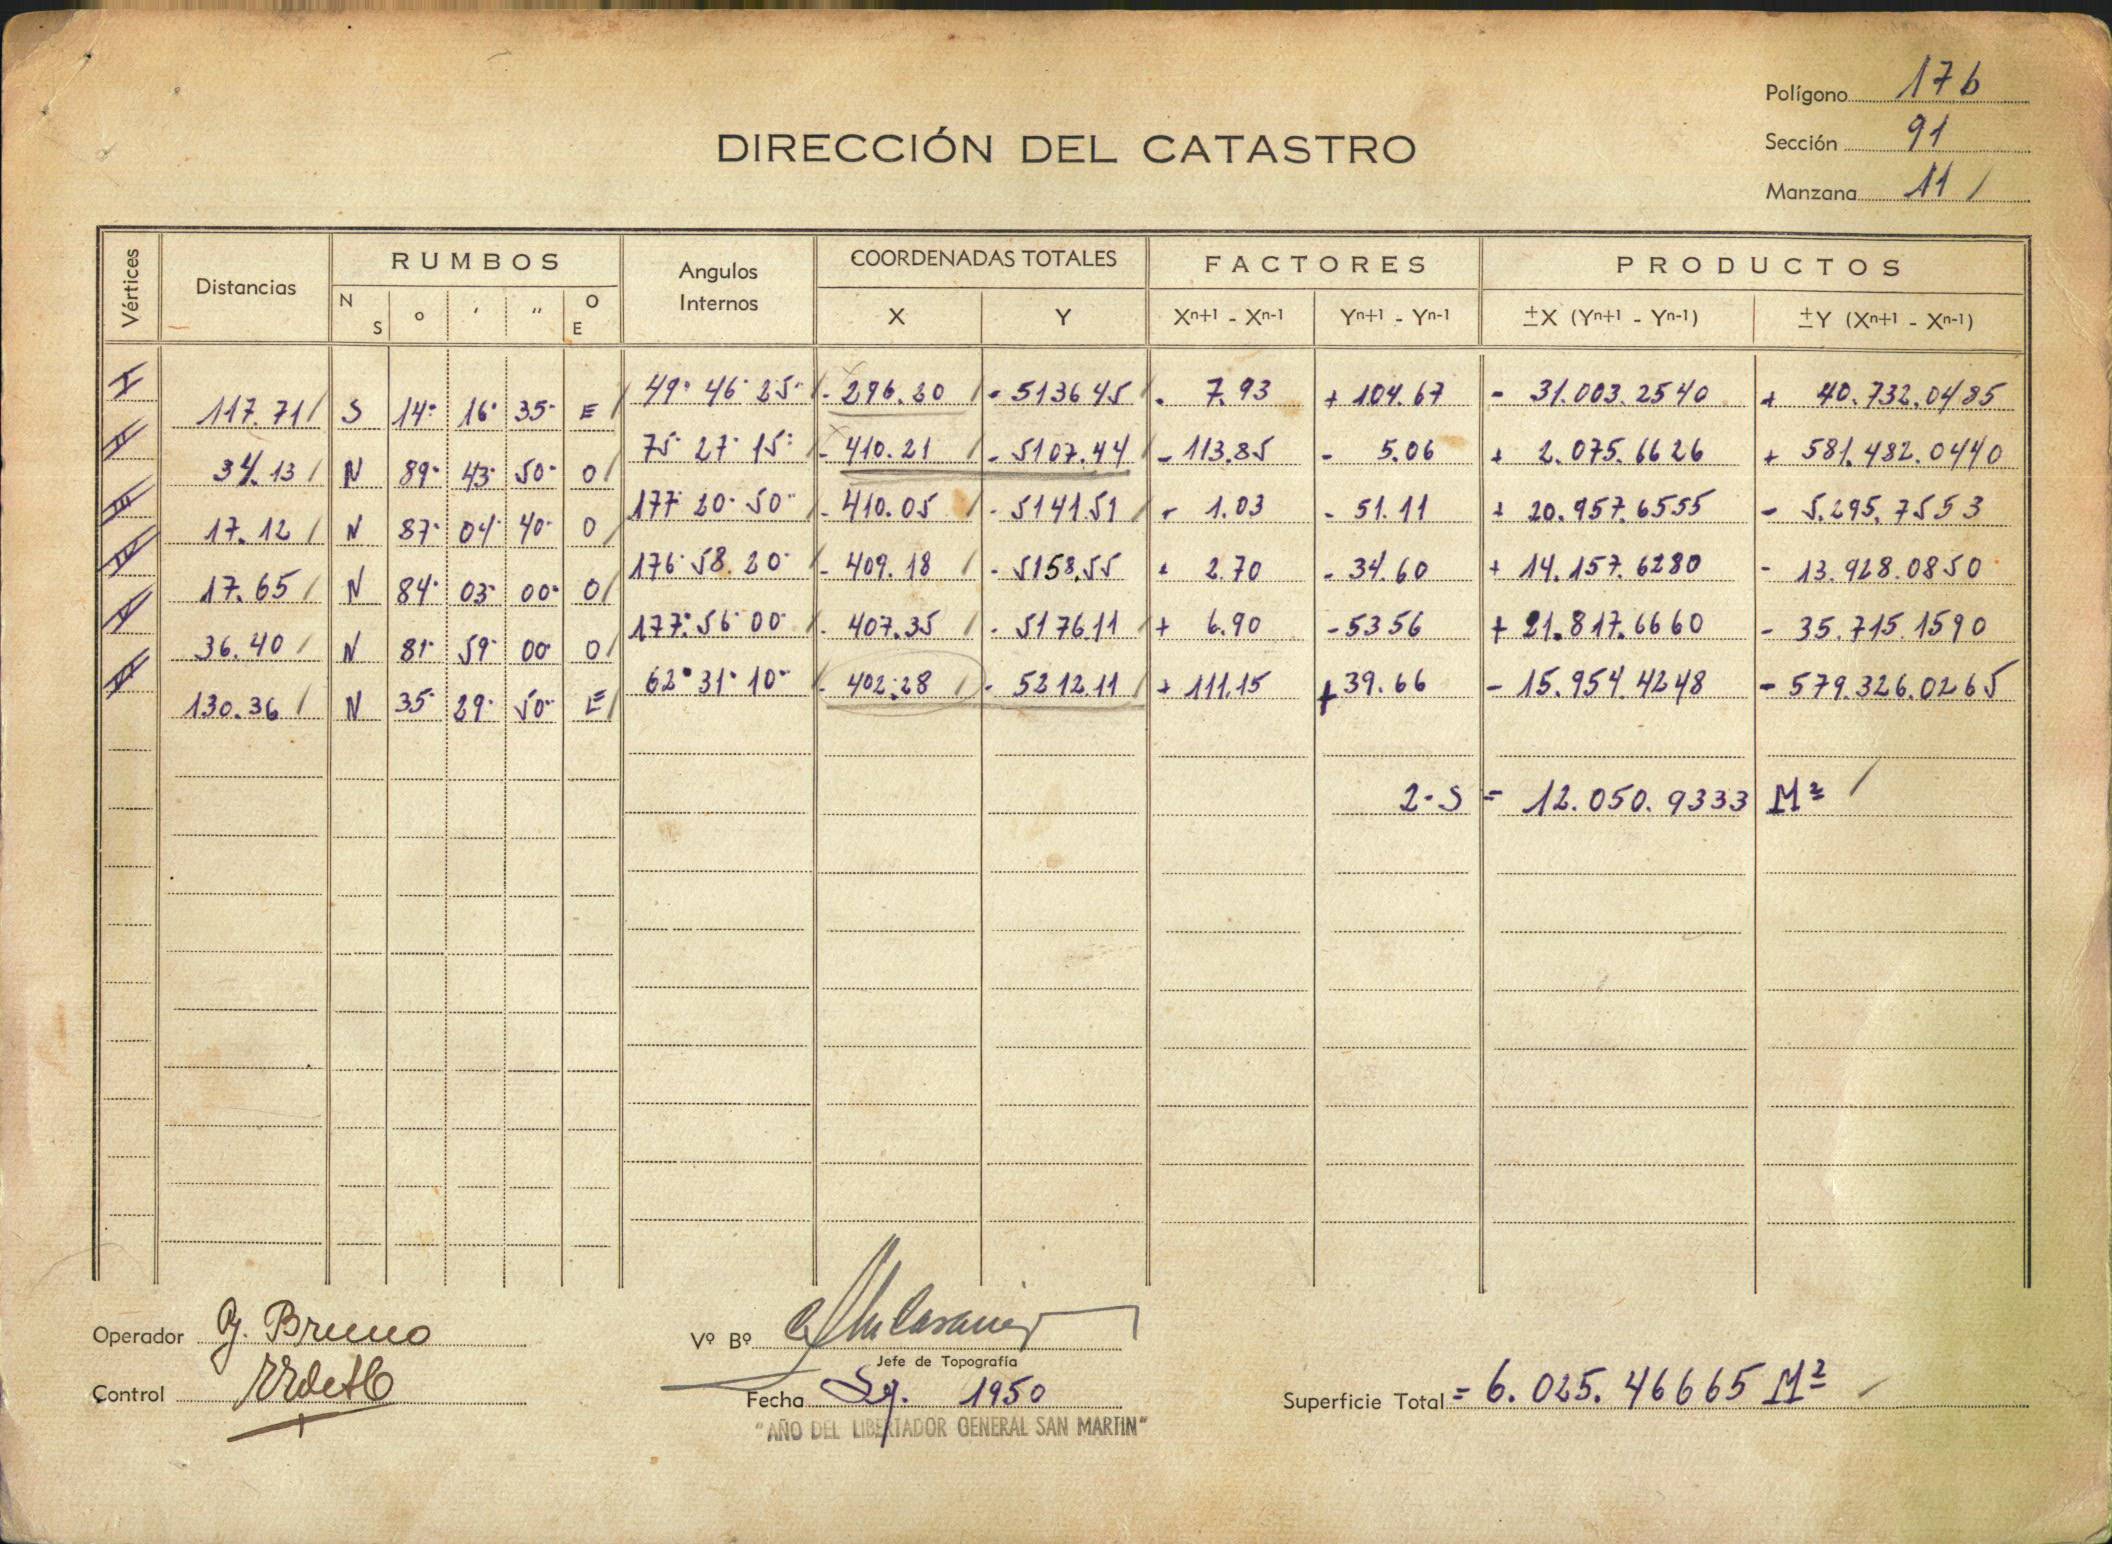 Polígono 17 b
Sección 91
Manzana 11 /
DIRECCIÓN DEL CATASTRO
Vértices Distancias RUMBOS Angulos Internos COORDENADAS TOTALES FACTORES PRODUCTOS
N S o ' " O E X Y Xn+1 - Xn-1 Yn+1 - Yn-1 ±X (Yn+1 - Yn-1) ±Y (Xn+1 - Xn-1)
I 49° 46' 25" / - 296.20 / - 5136 45 / - 7.93 + 104.67 - 31.003.2540 + 40.732.0485
117.71 / S 14° 16' 35" E /
II 75° 27' 15" - 410.21 / - 5107.44 / - 113.85 - 5.06 + 2.075.6626 + 581.482.0440
34.13 / N 89° 43' 50" O /
III 177° 20' 50" - 410.05 / - 5141.51 / + 1.03 - 51.11 + 20.957.6555 - 5.295.7553
17.12 / N 87° 04' 40" O /
IV 176° 58' 20" / - 409.18 / - 5158.55 + 2.70 - 34.60 + 14.157.6280 - 13.928.0850
17.65 / N 84° 03' 00" O /
V 177° 56' 00" / - 407.35 / - 5176.11 / + 6.90 - 53 56 + 21.817.6660 - 35.715.1590
36.40 / N 81° 59' 00" O /
VI 62° 31' 10" - 402.28 / - 5212.11 / + 111.15 + 39.66 - 15.954.4248 - 579.326.0265
130.36 / N 35° 29' 50" E /
2·S = 12.050.9333 M² /
Operador G. Bruno
Vº Bº
Jefe de Topografía
Control
Fecha 1950
Superficie Total = 6.025.46665 M² /
"AÑO DEL LIBERTADOR GENERAL SAN MARTIN"